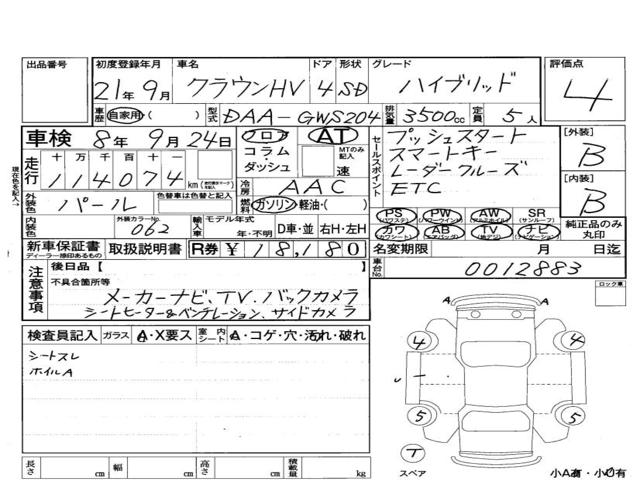 出品番号 初度登録年月 車名 ドア 形状 グレード 評価点
21年9月 クラウンHV 4 SD ハイブリッド 4
車歴 自家用 ( ) 型式 DAA-GWS204 排気量 3500cc 定員 5人
車検 8年9月24日 フロア AT セールスポイント プッシュスタート [外装]
走行 十万千百十一 コラム・ダッシュ MTのみ記入 速 スマートキー B
114074 km レーダークルーズ [内装]
冷房 AAC ETC B
外装色 パール 色替車は色替と記入 燃料 ガソリン・軽油・( )
PS PW AW SR
(パワステ) (パワーウインド) (アルミホイル) (サンルーフ)
カワ AB TV ナビ 純正品のみ丸印
(カワシート) (エアバッグ) (地デジ) (ナビゲーション)
内装色 外装カラーNo. 062 輸入車 モデル年式 年・不明 D車・並 右H・左H
新車保証書 取扱説明書 R券 ¥18,180 名変期限 月 日迄
ディーラー捺印あるもの
車台No. 0012883
注意事項 後日品【
不具合箇所等 ロック車
メーカーナビ、TV、バックカメラ
シートヒーター&ベンチレーション、サイドカメラ
検査員記入 ガラス A・X要ス 室内シート A・コゲ・穴・汚れ・破れ
シートスレ
ホイルA
4 4
5 5
T
スペア
長さ cm 幅 cm 高さ cm 積載量 kg
小A有・小U有
現在色を記入